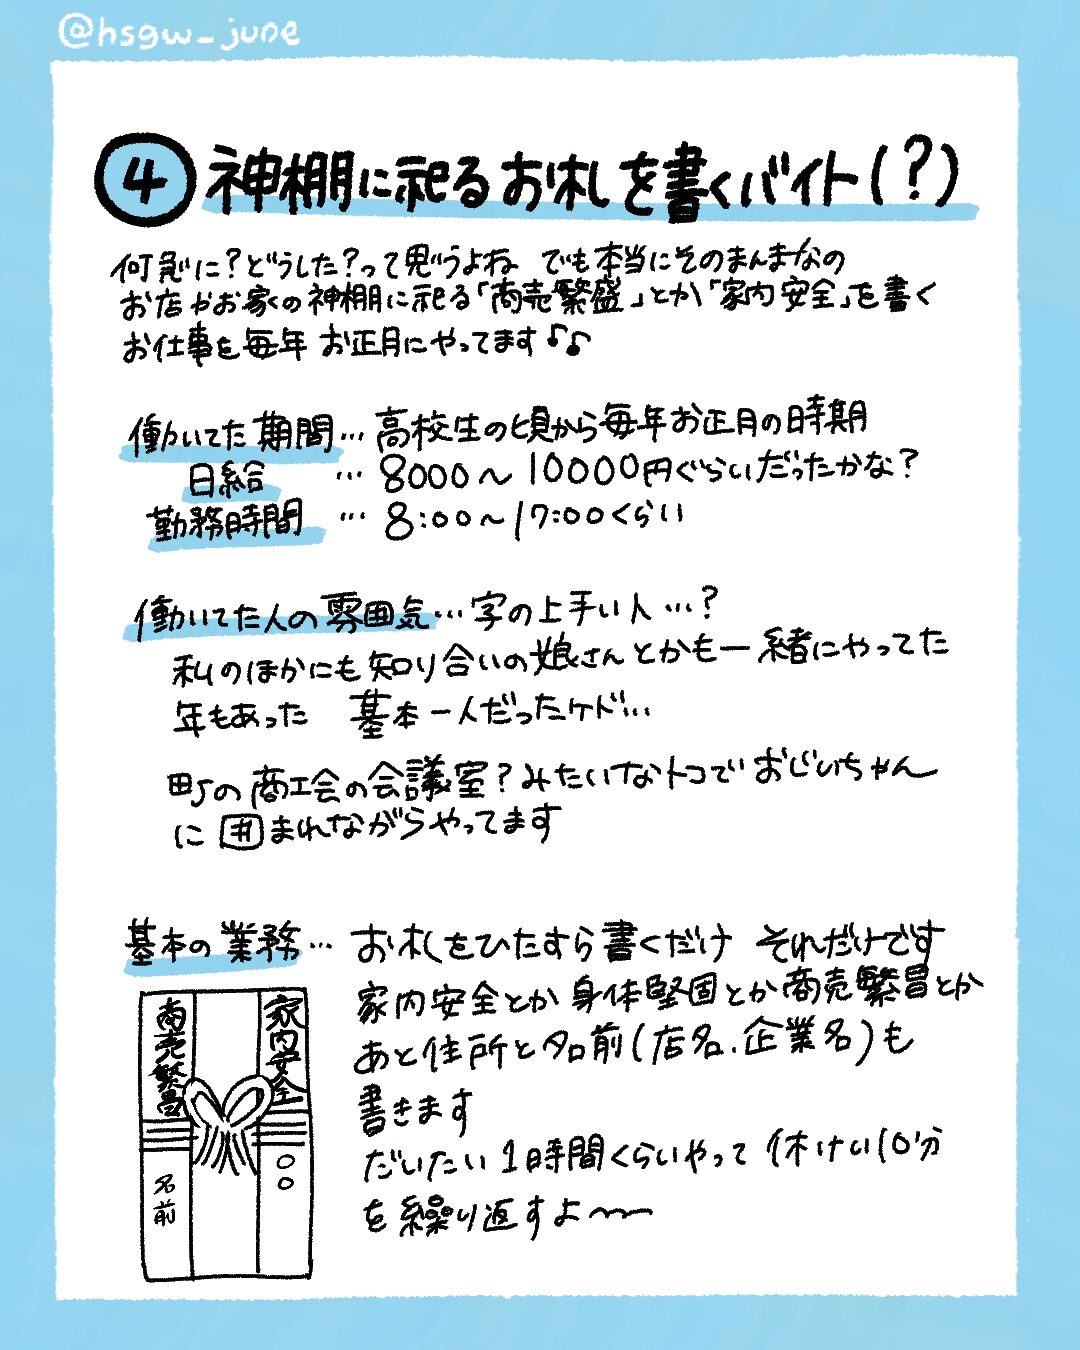 @hsgw_june
④ 神棚に祀るお札を書くバイト(？)
何急に？どうした？って思うよね でも本当にそのまんまなの
お店やお家の神棚に祀る「商売繁盛」とか「家内安全」を書く
お仕事を毎年お正月にやってます♪♪
働いてた期間…高校生の頃から毎年お正月の時期
日給 …8000〜10000円ぐらいだったかな？
勤務時間 …8:00〜17:00くらい
働いてた人の雰囲気…字の上手い人…？
私のほかにも知り合いの娘さんとかも一緒にやってた
年もあった 基本一人だったケド…
町の商工会の会議室？みたいなトコでおじいちゃん
に囲まれながらやってます
基本の業務…お札をひたすら書くだけ それだけです
家内安全とか身体堅固とか商売繁昌とか
あと住所と名前(店名.企業名)も
書きます
だいたい1時間くらいやって休けい10分
を繰り返すよ〜〜
家内安全
○○
商売繁昌
名前